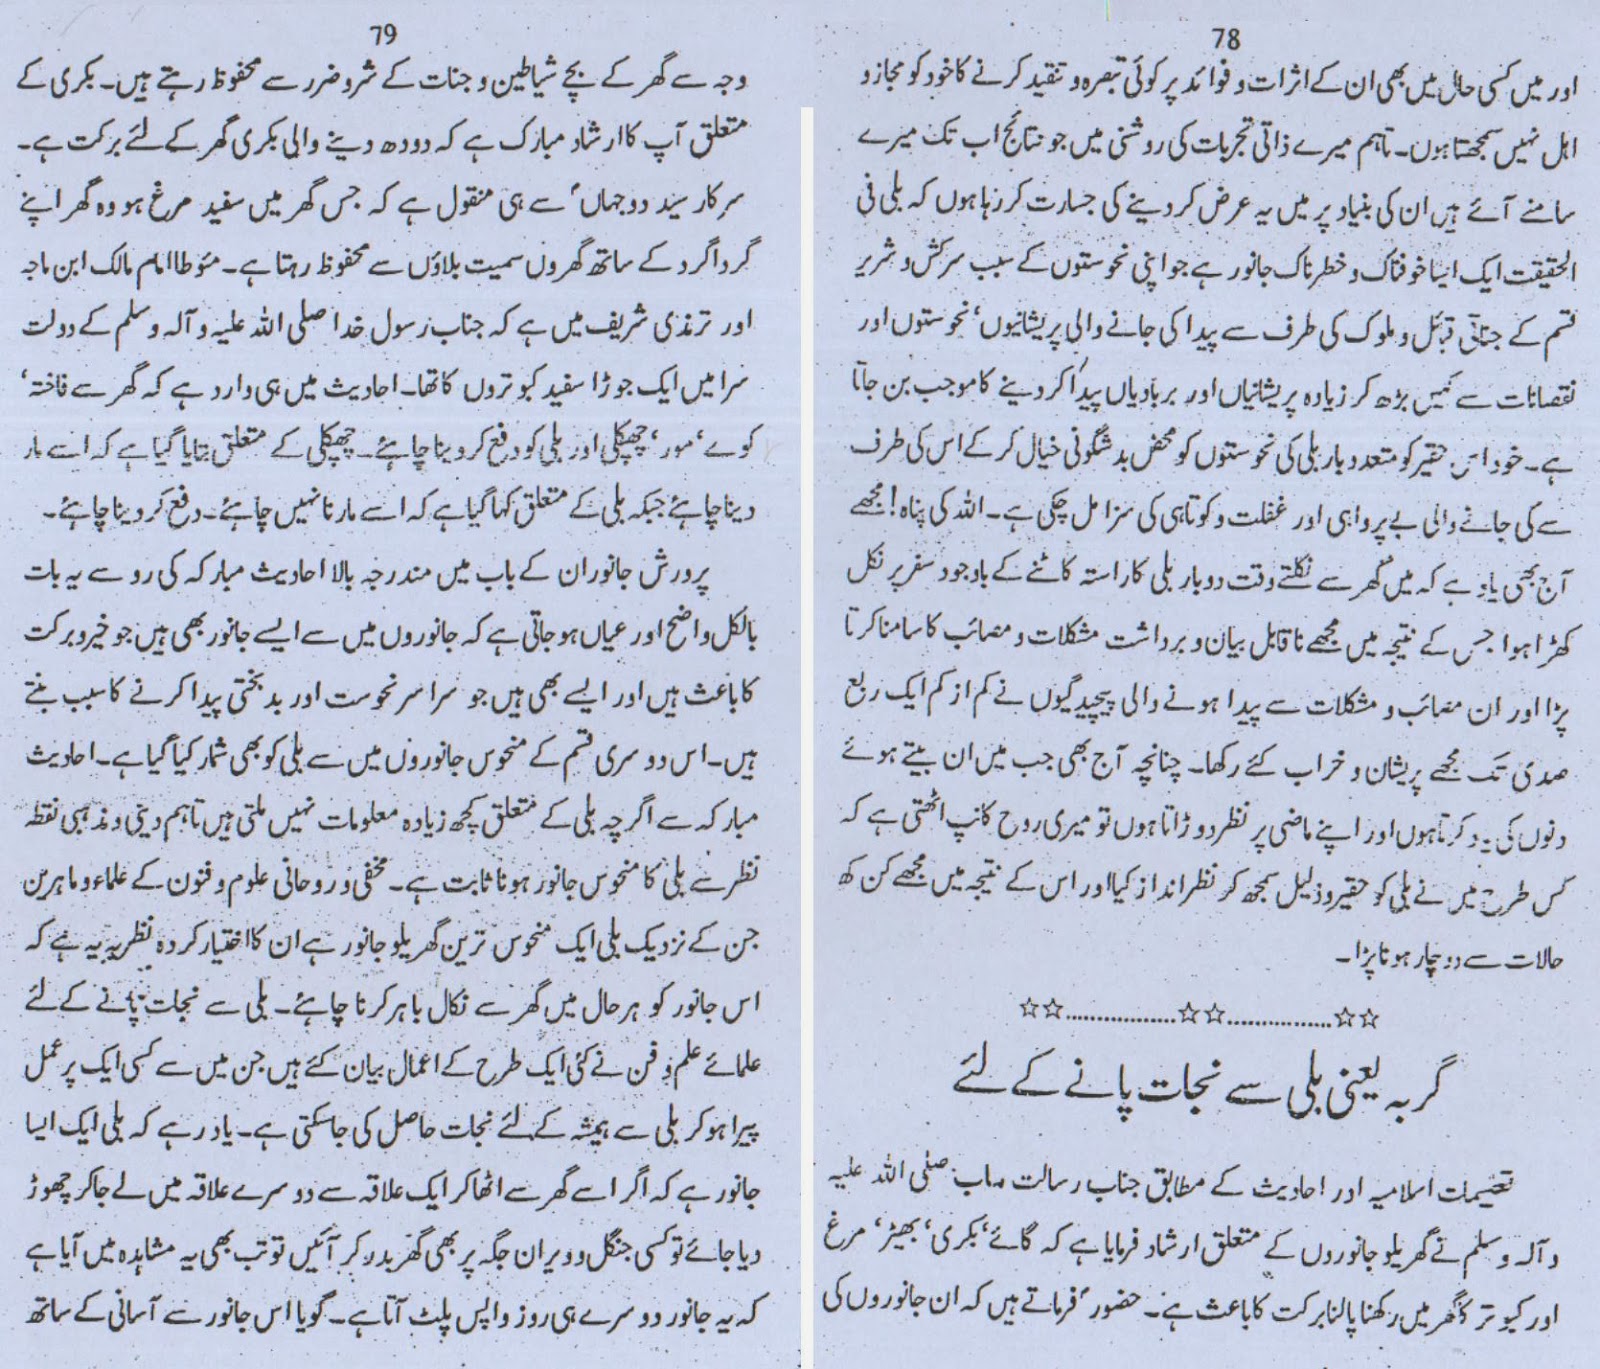 78
اور میں کسی حال میں بھی ان کے اثرات و فوائد پر کوئی تبصرہ و تنقید کرنے کا خود کو مجاز و
اہل نہیں سمجھتا ہوں۔ تاہم میرے ذاتی تجربات کی روشنی میں جو نتائج اب تک میرے
سامنے آئے ہیں ان کی بنیاد پر میں یہ عرض کر دینے کی جسارت کر رہا ہوں کہ بلی فی
الحقیقت ایک ایسا خوفناک و خطرناک جانور ہے جو اپنی نحوستوں کے سبب سرکش و شریر
قسم کے جناتی قبائل و ملوک کی طرف سے پیدا کی جانے والی پریشانیوں‘ نحوستوں اور
نقصانات سے کہیں بڑھ کر زیادہ پریشانیاں اور بربادیاں پیدا کر دینے کا موجب بن جاتا
ہے۔ خود اس حقیر کو متعدد بار بلی کی نحوستوں کو محض بدشگونی خیال کر کے اس کی طرف
سے کی جانے والی بے پرواہی اور غفلت و کوتاہی کی سزا مل چکی ہے۔ اللہ کی پناہ! مجھے
آج بھی یاد ہے کہ میں گھر سے نکلتے وقت دو بار بلی کا راستہ کاٹنے کے باوجود سفر پر نکل
کھڑا ہوا جس کے نتیجہ میں مجھے ناقابل بیان و برداشت مشکلات و مصائب کا سامنا کرنا
پڑا اور ان مصائب و مشکلات سے پیدا ہونے والی پیچیدگیوں نے کم از کم ایک ربع
صدی تک مجھے پریشان و خراب کئے رکھا۔ چنانچہ آج بھی جب میں ان بیتے ہوئے
دنوں کی یاد کرتا ہوں اور اپنے ماضی پر نظر دوڑاتا ہوں تو میری روح کانپ اٹھتی ہے کہ
کس طرح میں نے بلی کو حقیر و ذلیل سمجھ کر نظر انداز کیا اور اس کے نتیجہ میں مجھے کن کن
حالات سے دوچار ہونا پڑا۔
☆☆................☆☆................☆☆
گربہ یعنی بلی سے نجات پانے کے لئے
تعلیمات اسلامیہ اور احادیث کے مطابق جناب رسالت ماب صلی اللہ علیہ
و آلہ وسلم نے گھریلو جانوروں کے متعلق ارشاد فرمایا ہے کہ گائے‘ بکری‘ بھیڑ‘ مرغ
اور کبوتر کا گھر میں رکھنا پالنا برکت کا باعث ہے۔ حضورؐ فرماتے ہیں کہ ان جانوروں کی
79
وجہ سے گھر کے بچے شیاطین و جنات کے شر و ضرر سے محفوظ رہتے ہیں۔ بکری کے
متعلق آپ کا ارشاد مبارک ہے کہ دودھ دینے والی بکری گھر کے لئے برکت ہے۔
سرکار سید دوجہاںؐ سے ہی منقول ہے کہ جس گھر میں سفید مرغ ہو وہ گھر اپنے
گرداگرد کے ساتھ گھروں سمیت بلاؤں سے محفوظ رہتا ہے۔ مئوطا امام مالک ابن ماجہ
اور ترمذی شریف میں ہے کہ جناب رسول خدا صلی اللہ علیہ و آلہ وسلم کے دولت
سرا میں ایک جوڑا سفید کبوتروں کا تھا۔ احادیث میں ہی وارد ہے کہ گھر سے فاختہ‘
کوے‘ مور‘ چھپکلی اور بلی کو دفع کر دینا چاہئے۔ چھپکلی کے متعلق بتایا گیا ہے کہ اسے مار
دینا چاہئے جبکہ بلی کے متعلق کہا گیا ہے کہ اسے مارنا نہیں چاہئے۔ دفع کر دینا چاہئے۔
پرورش جانوران کے باب میں مندرجہ بالا احادیث مبارکہ کی رو سے یہ بات
بالکل واضح اور عیاں ہو جاتی ہے کہ جانوروں میں سے ایسے جانور بھی ہیں جو خیر و برکت
کا باعث ہیں اور ایسے بھی ہیں جو سراسر نحوست اور بدبختی پیدا کرنے کا سبب بنتے
ہیں۔ اس دوسری قسم کے منحوس جانوروں میں سے بلی کو بھی شمار کیا گیا ہے۔ احادیث
مبارکہ سے اگرچہ بلی کے متعلق کچھ زیادہ معلومات نہیں ملتی ہیں تاہم دینی و مذہبی نقطہ
نظر سے بلی کا منحوس جانور ہونا ثابت ہے۔ مخفی و روحانی علوم و فنون کے علماء و ماہرین
جن کے نزدیک بلی ایک منحوس ترین گھریلو جانور ہے ان کا اختیار کردہ نظریہ یہ ہے کہ
اس جانور کو ہر حال میں گھر سے نکال باہر کرنا چاہئے۔ بلی سے نجات پانے کے لئے
علمائے علم و فن نے کئی ایک طرح کے اعمال بیان کئے ہیں جن میں سے کسی ایک پر عمل
پیرا ہو کر بلی سے ہمیشہ کے لئے نجات حاصل کی جا سکتی ہے۔ یاد رہے کہ بلی ایک ایسا
جانور ہے کہ اگر اسے گھر سے اٹھا کر ایک علاقہ سے دوسرے علاقہ میں لے جا کر چھوڑ
دیا جائے تو کسی جنگل و ویران جگہ پر بھی گھر بدر کر آئیں تو تب بھی یہ مشاہدہ میں آیا ہے
کہ یہ جانور دوسرے ہی روز واپس پلٹ آتا ہے۔ گویا اس جانور سے آسانی کے ساتھ